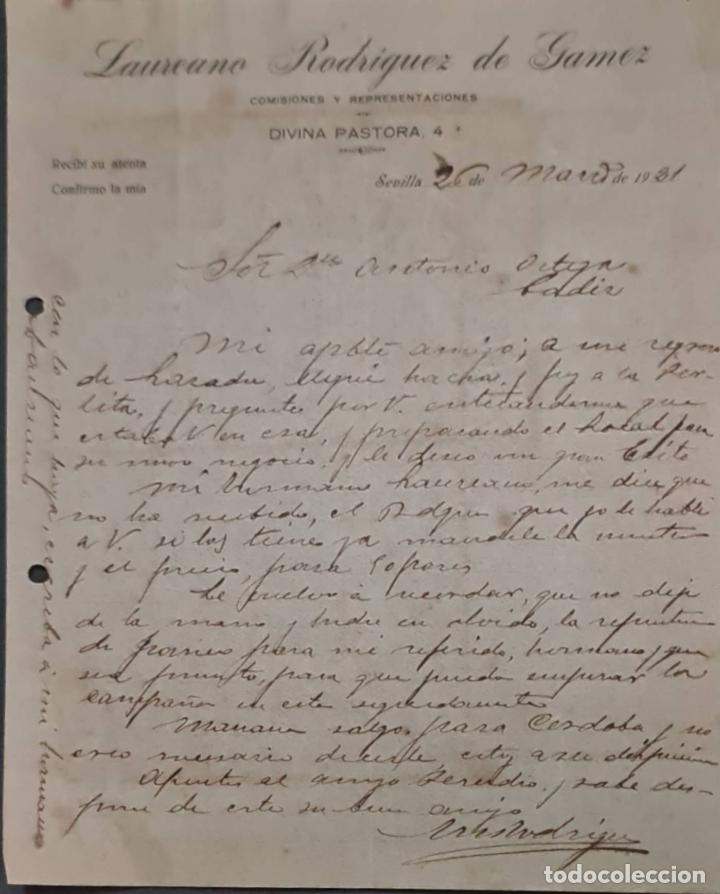 Laureano Rodriguez de Gamez
COMISIONES Y REPRESENTACIONES
DIVINA PASTORA, 4
Recibí su atenta
Confirmo la mia
Sevilla 26 de Marzo de 1931
Antonio Ortega
Cadiz
Mi apble amigo; a mi regreso
de y fuy a la
y pregunte por V. enterandome que
estaba V en esa, y preparando el local para
su nuevo negocio, y le deseo un gran Exito
Mi hermano Laureano, me dice que
no ha recibido, el que yo le hable
a V. si los tiene ya mandele la muestra
y el precio, para
Le vuelvo a recordar, que no deje
de la mano y heche en olvido, la
de para mi referido, hermano y que
sea pronto, para que pueda empezar la
campaña en esta
Mañana salgo para Cordoba y no
creo necesario decirle, estoy a su disposicion
al amigo y sabe des-
pone de este su buen amigo
Rodriguez
con lo que haya, escriba á mi hermano
Laureano
todocoleccion
todocoleccion.net